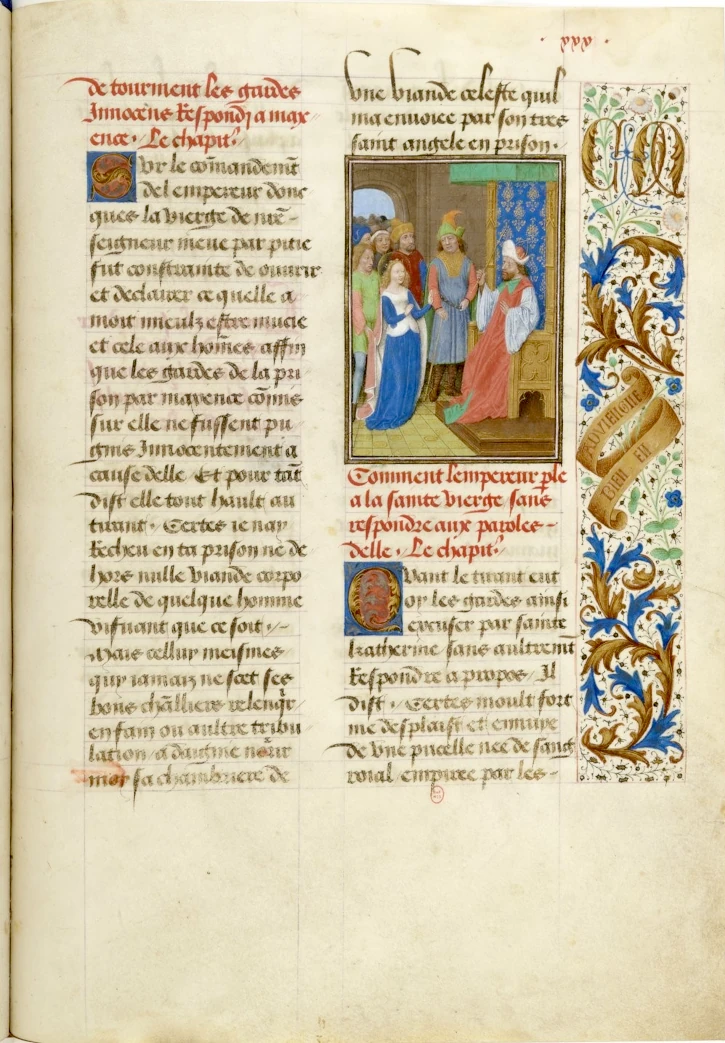 xxx
de tourment les gardes
Innocens Respondy a max
ence. Le chapitre
Sur le comandement
del empereur donc
ques la vierge de nre -
seigneur meue par pitie
fut constrainte de ouurir
et declairer ce quelle a
moit mieulx estre mucie
et cele aux hommes affin
que les gardes de la pri
son par mayence comis
sur elle ne fussent pu
gnis Innocentement a
cause delle Et pour tant
dist elle tout hault au
tirant. Certes ie nay
Recheu en ta prison ne de
hors nulle viande corpo
relle de quelque homme
visuant que ce soit
Mais cellui meismes
qui iamaiz ne scet ses
bons cheualliers relenquir
en faim ou aultre tribu
lation a daigne norir
moy sa chambriere de
vne viande celeste quil
ma enuoiee par son tres
saint angele en prison.
Comment lempereur ple
a la sainte vierge sans
respondre aux paroles -
delle. Le chapitre
Quant le tirant eut
oy les gardes ainsi
excuser par sainte
katherine sans aultrement
Respondre a propos Il
dist. Certes moult fort
me desplaist et ennuye
de vne pucelle nee de sang
roial empiree par les -
ADVIENGNE
BIEN EN